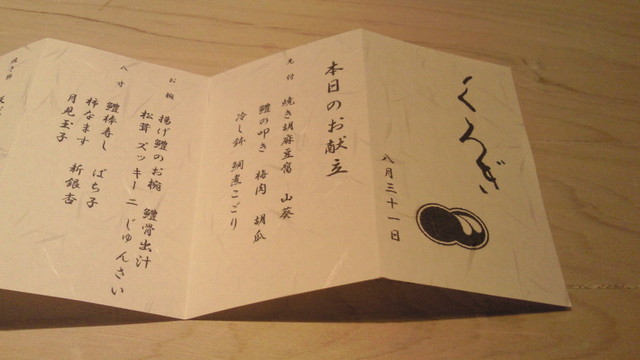 くろぎ
八月三十一日
本日のお献立
先付 焼き胡麻豆腐 山葵
鱧の叩き 梅肉 胡瓜
冷し鉢 鯛煮こごり
お椀 揚げ鱧のお椀 鱧骨出汁
松茸 ズッキーニ じゅんさい
八寸 鱧棒寿し ばち子
柿なます 新銀杏
月見玉子